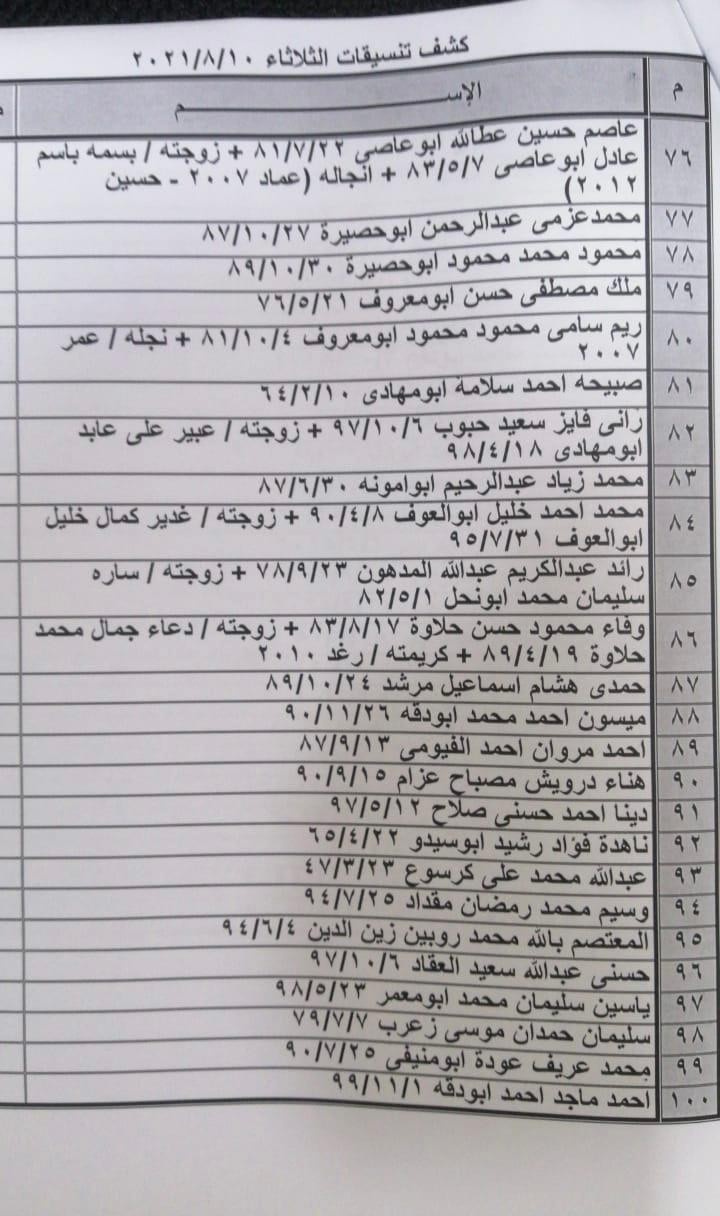 كشف تنسيقات الثلاثاء ٢٠٢١/٨/١٠
م الإســـــم م
٧٦ عاصم حسين عطاالله ابوعاصى ٨١/٧/٢٢ + زوجته / بسمه باسم
عادل ابوعاصى ٨٣/٥/٧ + انجاله (عماد ٢٠٠٧ - حسين
٢٠١٢)
٧٧ محمدعزمى عبدالرحمن ابوحصيرة ٨٧/١٠/٢٧
٧٨ محمود محمد محمود ابوحصيرة ٨٩/١٠/٣٠
٧٩ ملك مصطفى حسن ابومعروف ٧٦/٥/٢١
٨٠ ريم سامى محمود محمود ابومعروف ٨١/١٠/٤ + نجله / عمر
٢٠٠٧
٨١ صبيحه احمد سلامة ابومهادى ٦٤/٢/١٠
٨٢ رانى فايز سعيد حبوب ٩٧/١٠/٦ + زوجته / عبير على عابد
ابومهادى ٩٨/٤/١٨
٨٣ محمد زياد عبدالرحيم ابوامونه ٨٧/٦/٣٠
٨٤ محمد احمد خليل ابوالعوف ٩٠/٤/٨ + زوجته / غدير كمال خليل
ابوالعوف ٩٥/٧/٣١
٨٥ رائد عبدالكريم عبدالله المدهون ٧٨/٩/٢٣ + زوجته / ساره
سليمان محمد ابونحل ٨٢/٥/١
٨٦ وفاء محمود حسن حلاوة ٨٣/٨/١٧ + زوجته / دعاء جمال محمد
حلاوة ٨٩/٤/١٩ + كريمته / رغد ٢٠١٠
٨٧ حمدى هشام اسماعيل مرشد ٨٩/١٠/٢٤
٨٨ ميسون احمد محمد ابودقه ٩٠/١١/٢٦
٨٩ احمد مروان احمد الفيومى ٨٧/٩/١٣
٩٠ هناء درويش مصباح عزام ٩٠/٩/١٥
٩١ دينا احمد حسنى صلاح ٩٧/٥/١٢
٩٢ ناهدة فؤاد رشيد ابوسيدو ٦٥/٤/٢٢
٩٣ عبدالله محمد على كرسوع ٤٧/٣/٢٣
٩٤ وسيم محمد رمضان مقداد ٩٤/٧/٢٥
٩٥ المعتصم بالله محمد روبين زين الدين ٩٤/٦/٤
٩٦ حسنى عبدالله سعيد العقاد ٩٧/١٠/٦
٩٧ ياسين سليمان محمد ابومعمر ٩٨/٥/٢٣
٩٨ سليمان حمدان موسى زعرب ٧٩/٧/٧
٩٩ محمد عريف عودة ابومنيفى ٩٠/٧/٢٥
١٠٠ احمد ماجد احمد ابودقه ٩٩/١١/١